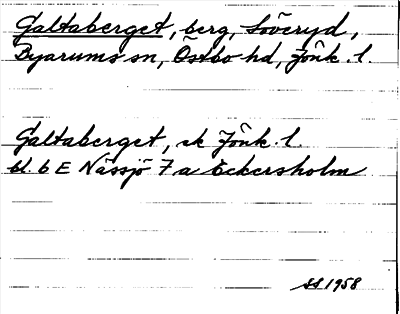 Galtaberget, berg, Löveryd,
Byarums sn, Östbo hd, Jönk. l.
Galtaberget, ek Jönk. l.
bl. 6 E Nässjö 7 a Eckersholm
SS 1958